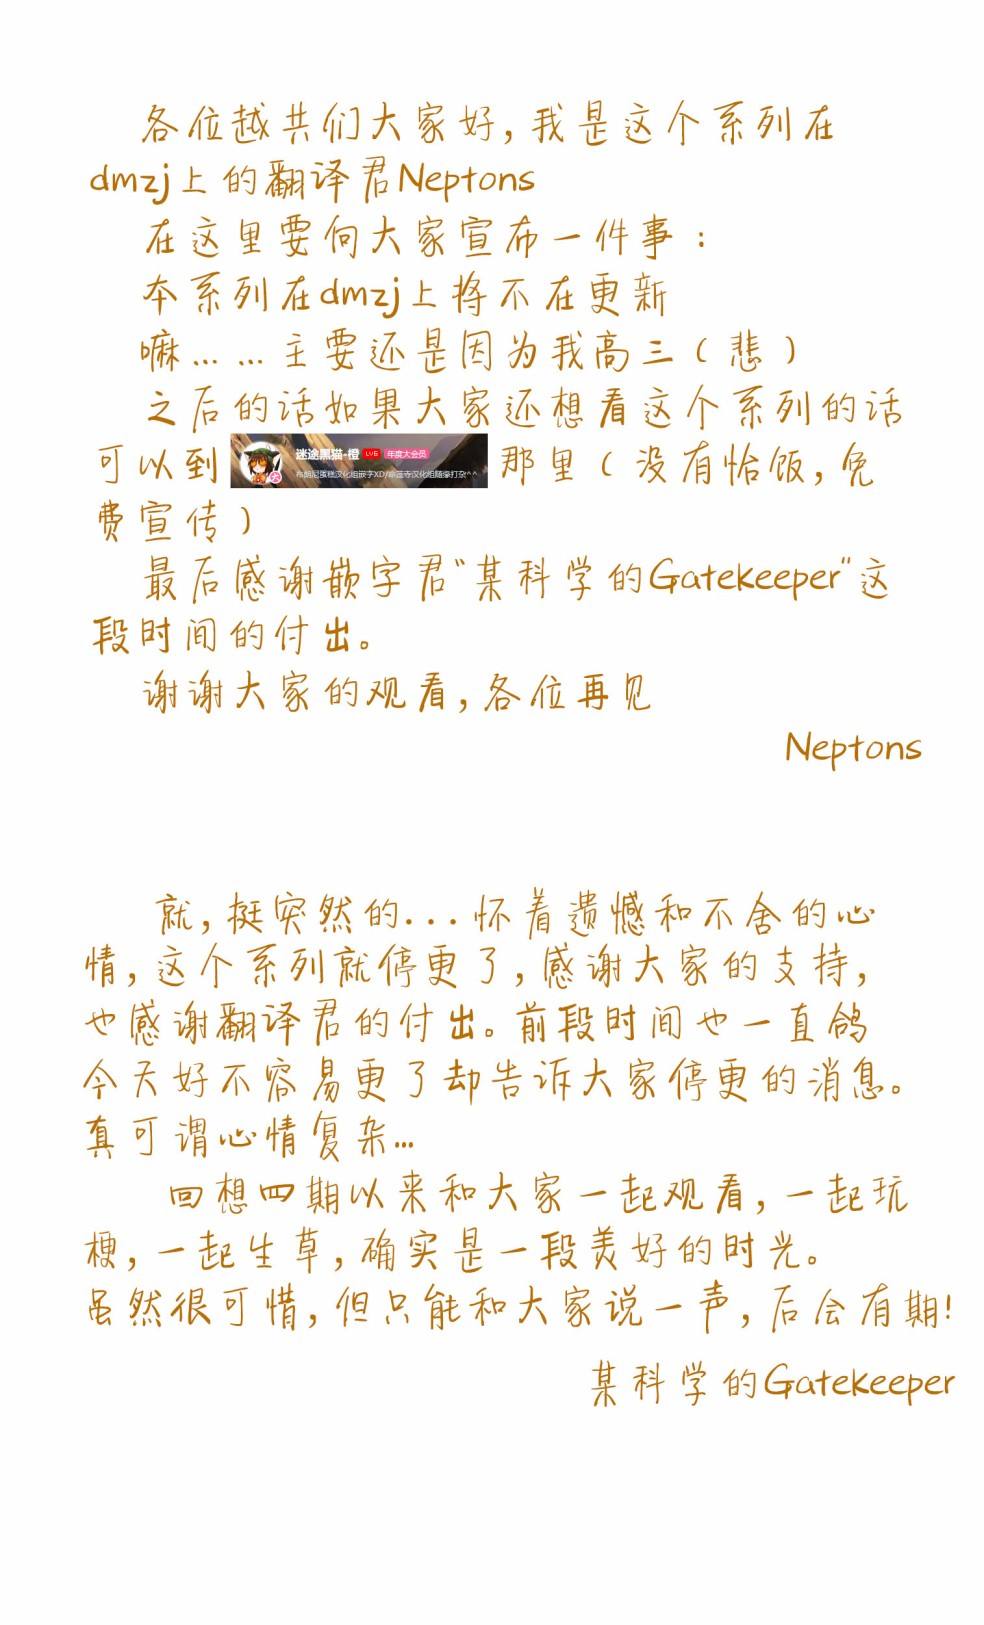 各位越共们大家好,我是这个系列在
dmzj上的翻译君Neptons
在这里要向大家宣布一件事：
本系列在dmzj上将不在更新
嘛……主要还是因为我高三（悲）
之后的话如果大家还想看这个系列的话
可以到 迷途黑猫-橙 LV6 年度大会员 那里（没有恰饭,免
布朗尼蛋糕汉化组嵌字XD/命莲寺汉化组随缘打杂^^
费宣传）
最后感谢嵌字君"某科学的Gatekeeper"这
段时间的付出。
谢谢大家的观看,各位再见
Neptons
就,挺突然的...怀着遗憾和不舍的心
情,这个系列就停更了,感谢大家的支持,
也感谢翻译君的付出。前段时间也一直鸽
今天好不容易更了却告诉大家停更的消息。
真可谓心情复杂...
回想四期以来和大家一起观看,一起玩
梗,一起生草,确实是一段美好的时光。
虽然很可惜,但只能和大家说一声,后会有期!
某科学的Gatekeeper